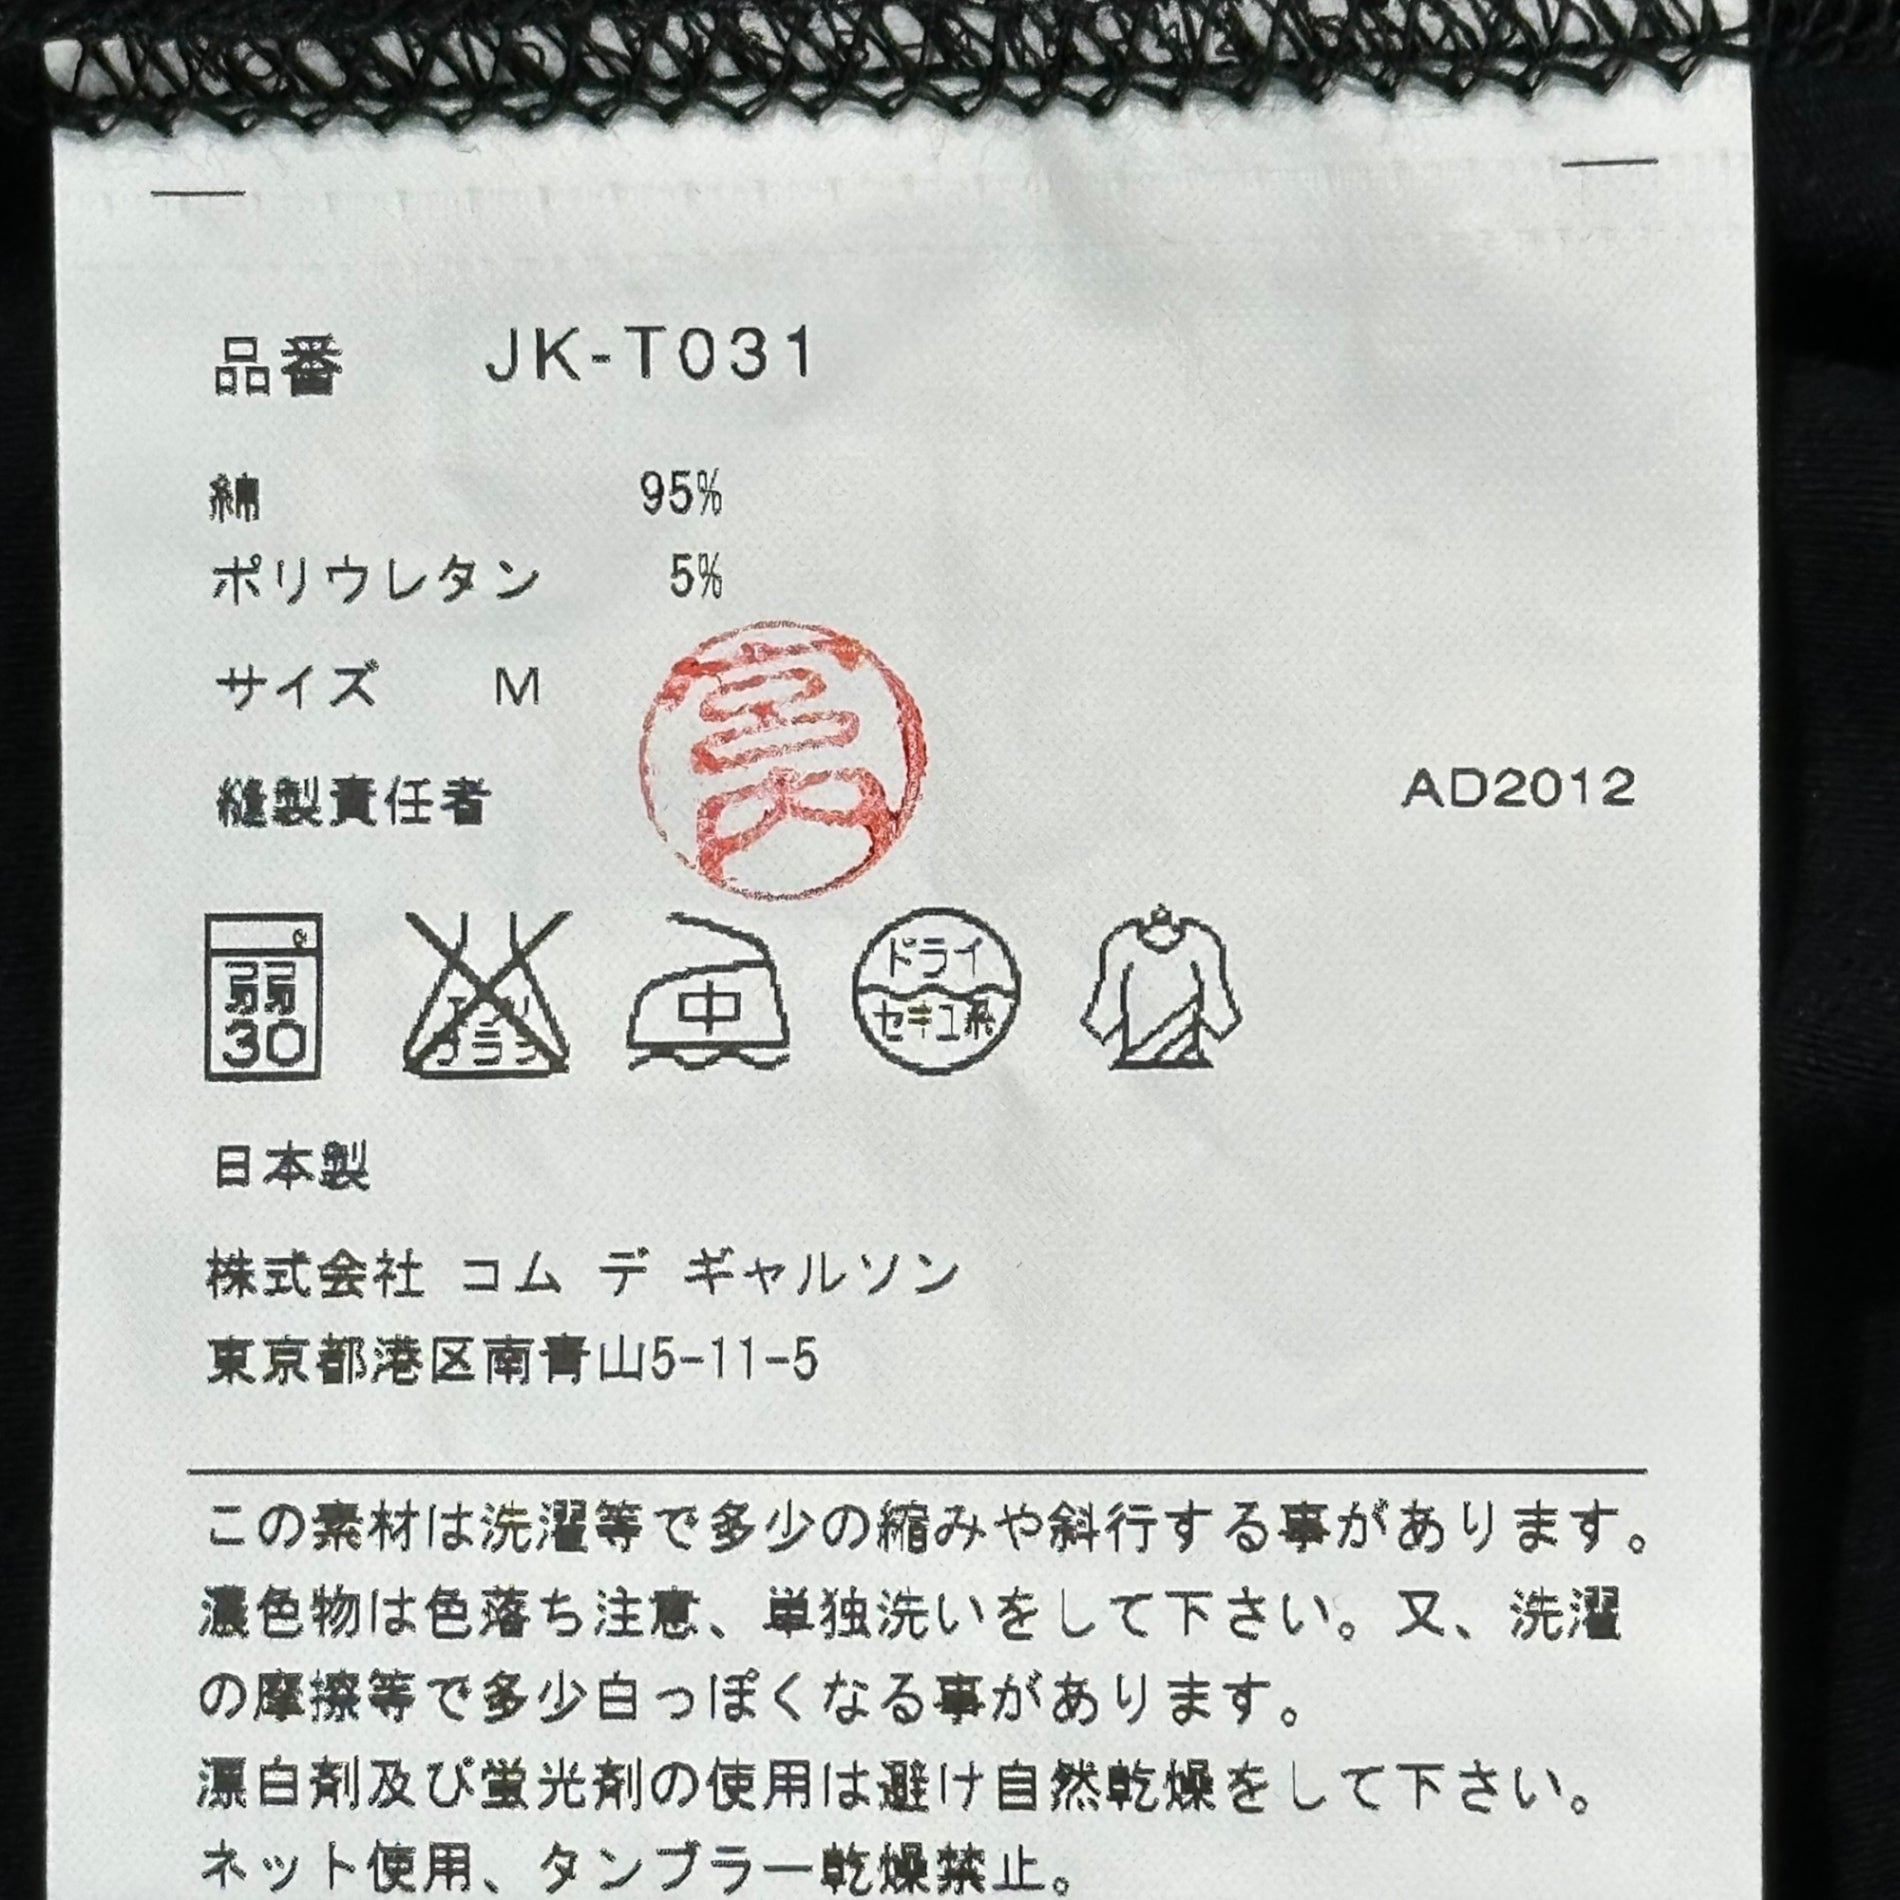 品番 JK-T031
綿 95%
ポリウレタン 5%
サイズ M
縫製責任者
AD2012
弱 30 エンソ サラシ 中 ドライ セキユ系
日本製
株式会社 コム デ ギャルソン
東京都港区南青山5-11-5
この素材は洗濯等で多少の縮みや斜行する事があります。
濃色物は色落ち注意、単独洗いをして下さい。又、洗濯
の摩擦等で多少白っぽくなる事があります。
漂白剤及び蛍光剤の使用は避け自然乾燥をして下さい。
ネット使用、タンブラー乾燥禁止。